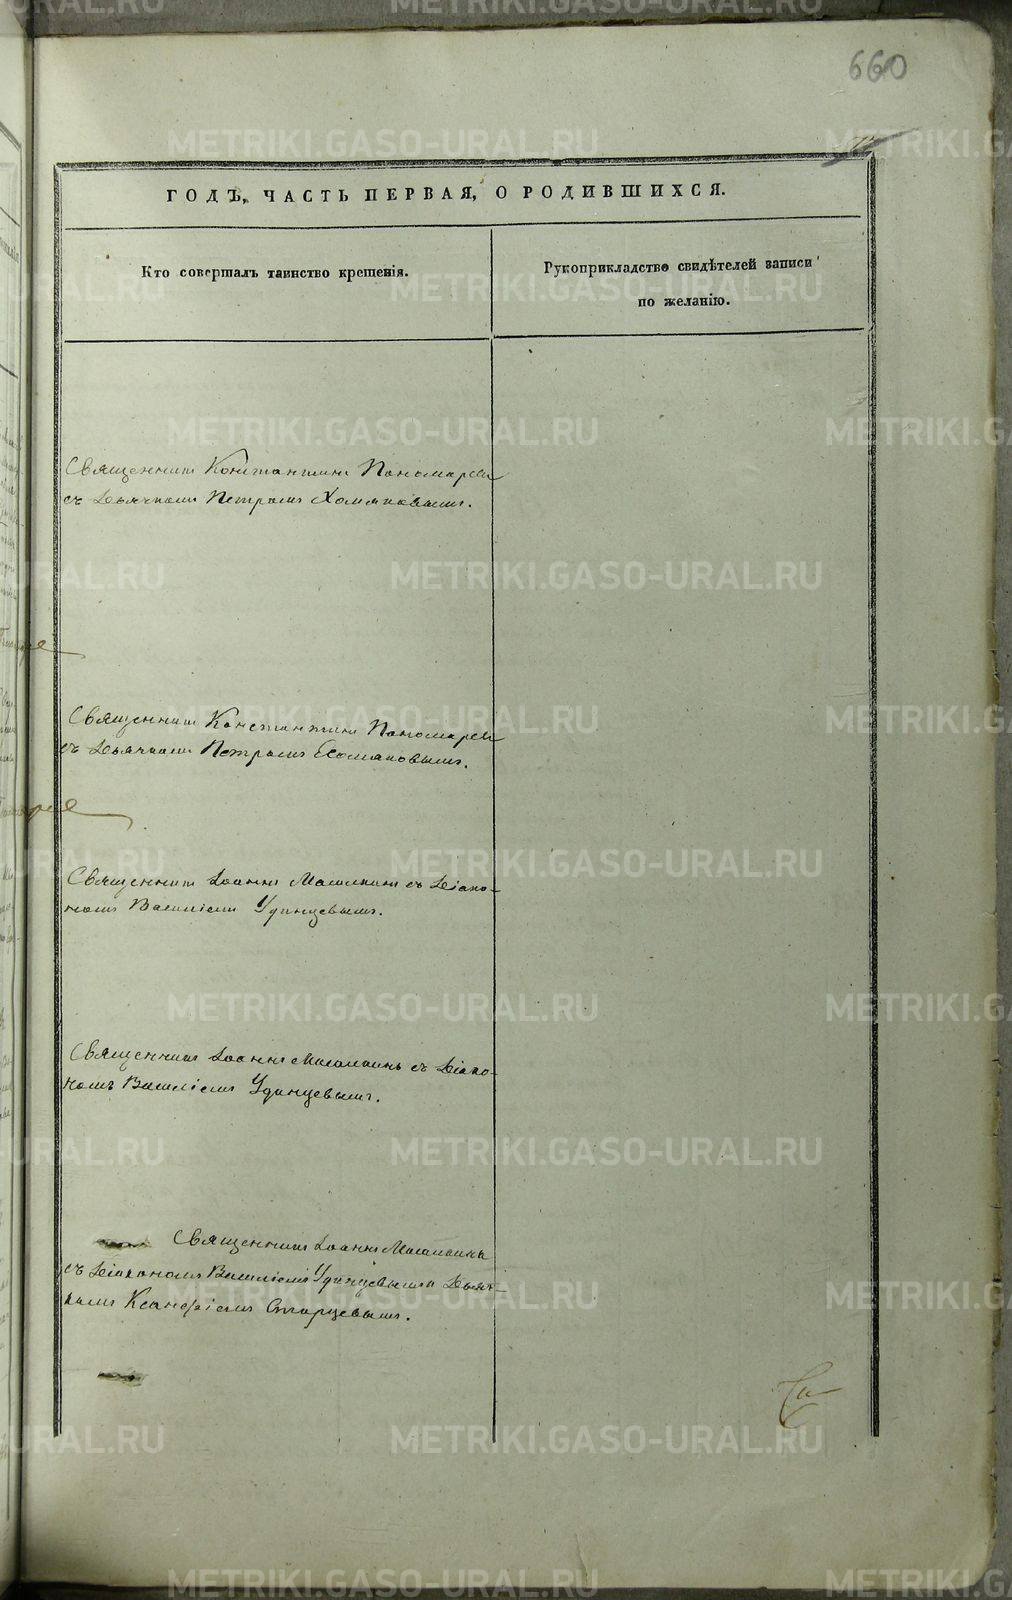 660
ГОДЪ, ЧАСТЬ ПЕРВАЯ, О РОДИВШИХСЯ.
Кто совершалъ таинство крещенія.
Рукоприкладство свидѣтелей записи
по желанію.
Священникъ Константинъ Пономаревъ
съ Дьячкомъ Петромъ Хомяковымъ.
Священникъ Константинъ Пономаревъ
съ Дьячкомъ Петромъ Хомяковымъ.
Священникъ Іоаннъ съ Діако-
номъ Василіемъ Удинцевымъ.
Священникъ Іоаннъ съ Діако-
номъ Василіемъ Удинцевымъ.
Священникъ Іоаннъ
съ Діакономъ Василіемъ Удинцевымъ и Дьяч-
комъ Ксанфіемъ Старцевымъ.
METRIKI.GASO-URAL.RU